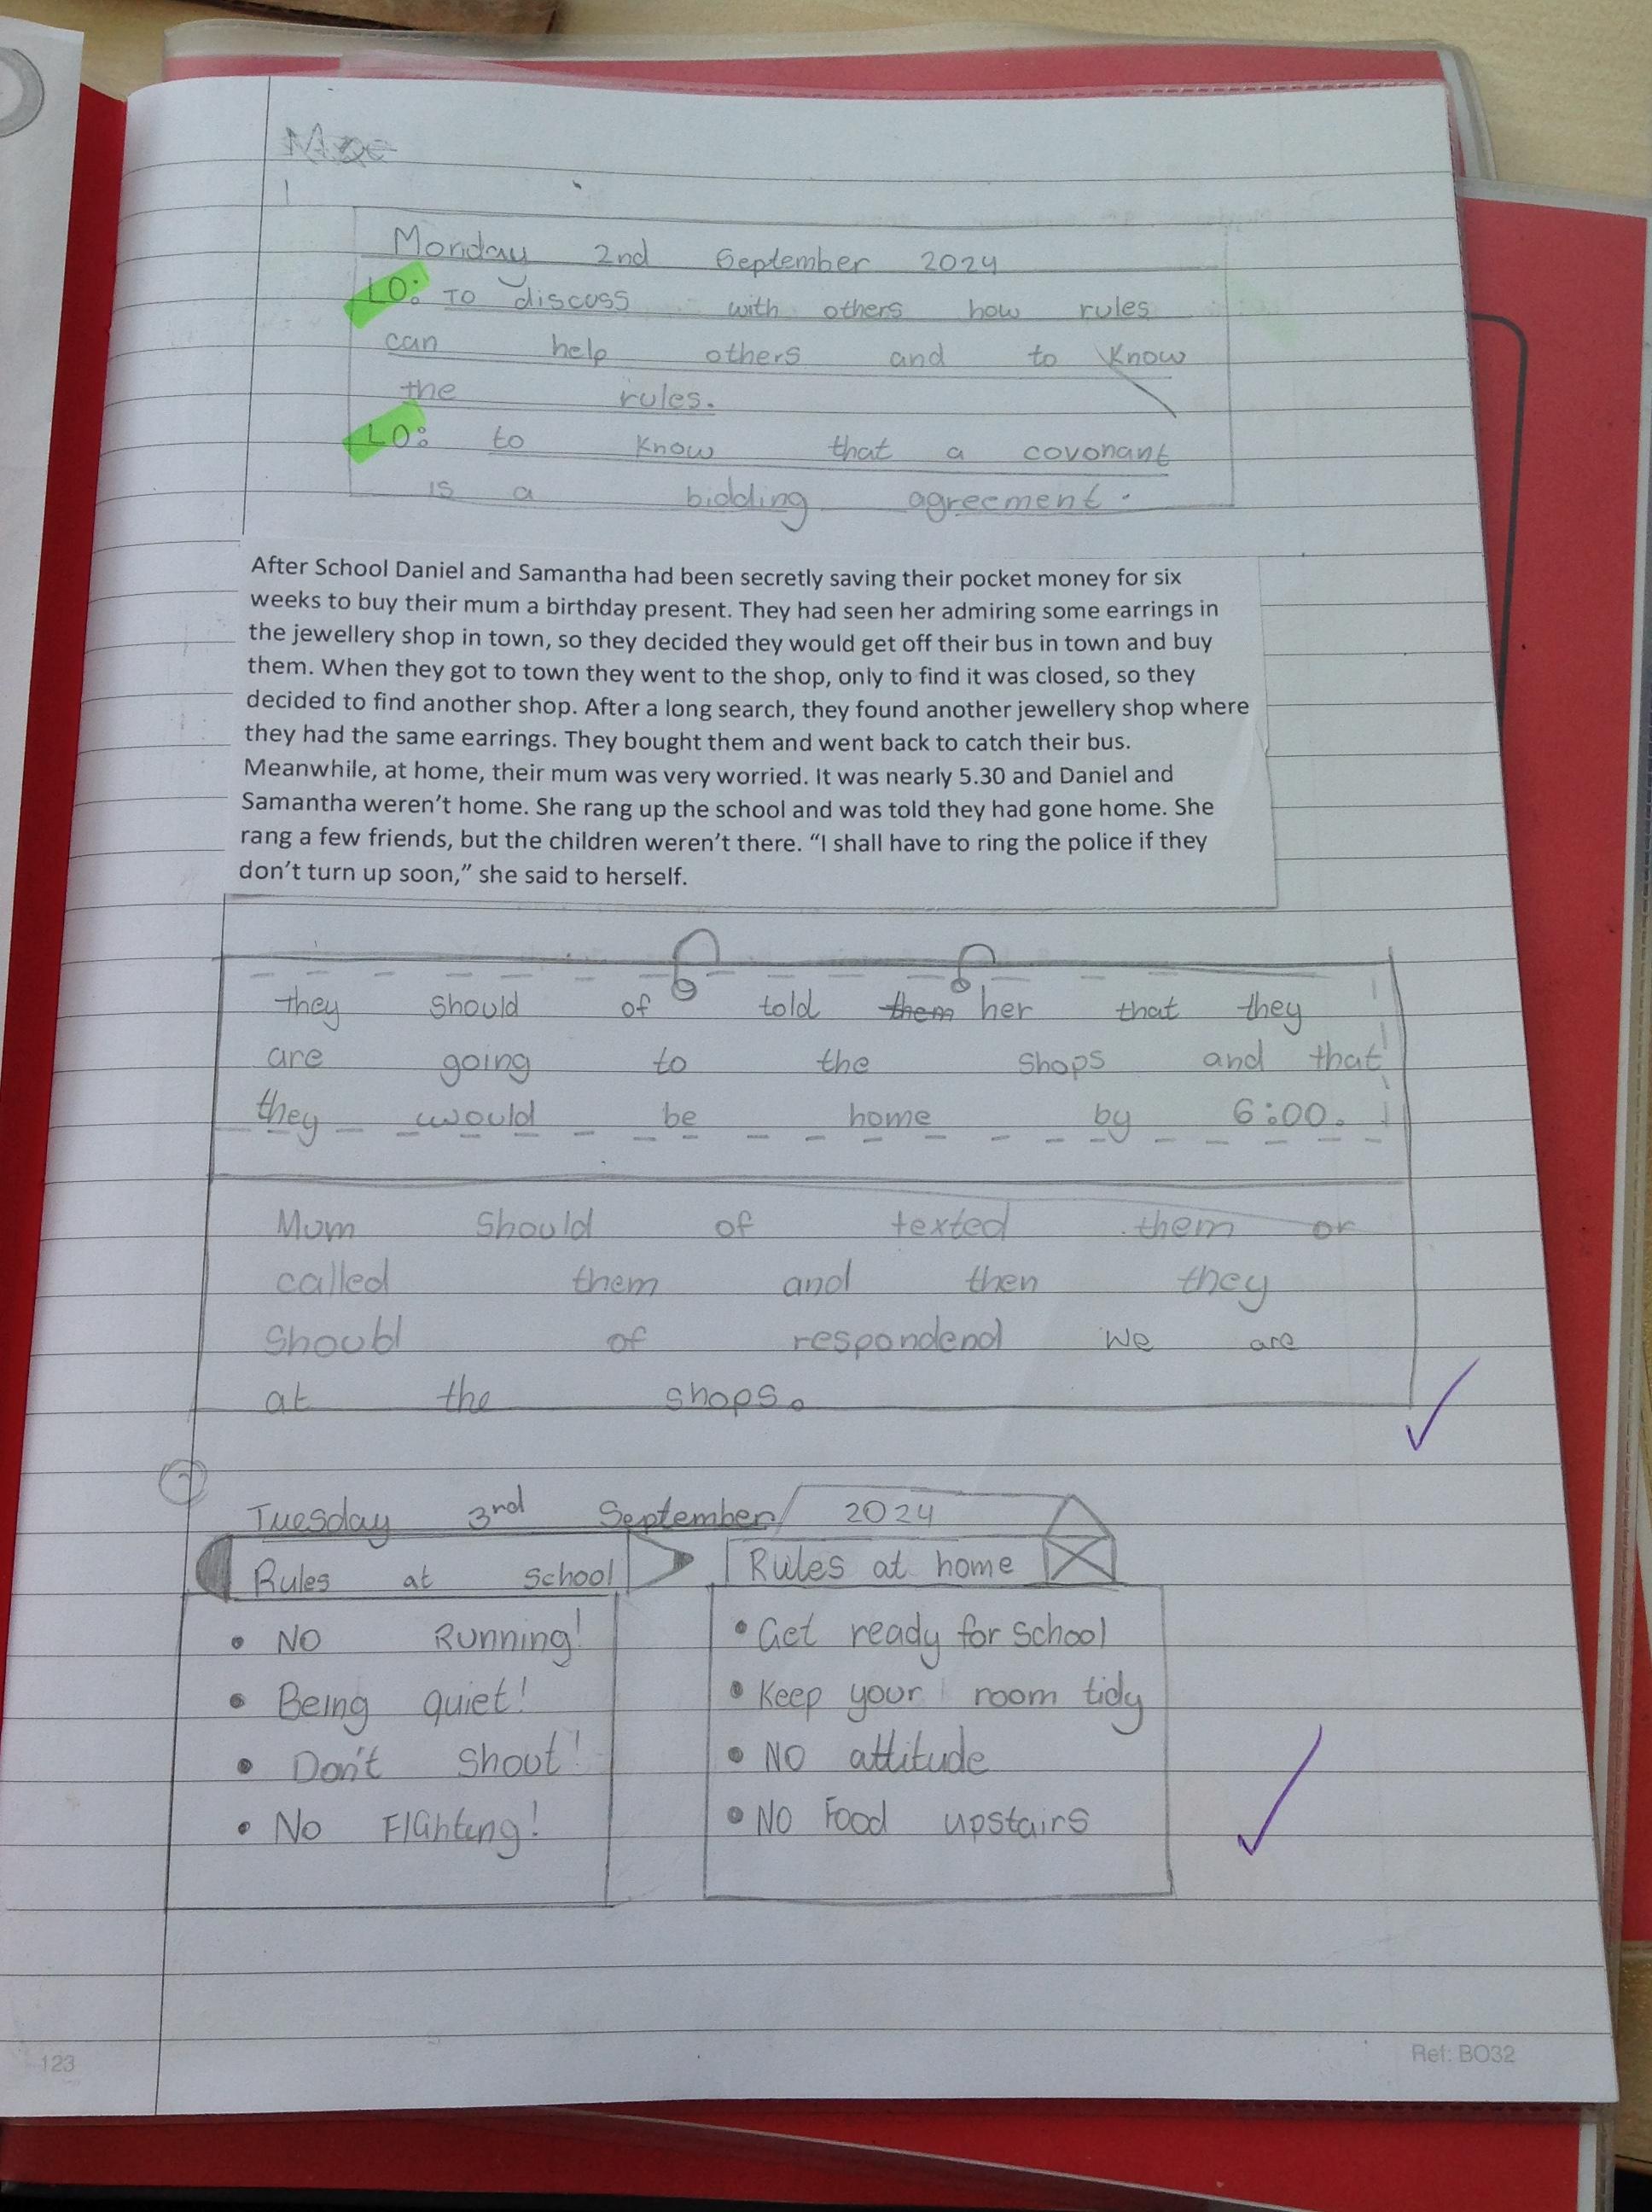 Monday 2nd September 2024
LO: TO discuss with others how rules
can help others and to Know
the rules.
LO: to Know that a covonant
is a bidding agreement.
After School Daniel and Samantha had been secretly saving their pocket money for six
weeks to buy their mum a birthday present. They had seen her admiring some earrings in
the jewellery shop in town, so they decided they would get off their bus in town and buy
them. When they got to town they went to the shop, only to find it was closed, so they
decided to find another shop. After a long search, they found another jewellery shop where
they had the same earrings. They bought them and went back to catch their bus.
Meanwhile, at home, their mum was very worried. It was nearly 5.30 and Daniel and
Samantha weren’t home. She rang up the school and was told they had gone home. She
rang a few friends, but the children weren’t there. “I shall have to ring the police if they
don’t turn up soon,” she said to herself.
they should of told them her that they
are going to the shops and that
they would be home by 6:00.
Mum should of texted them or
called them and then they
shoubl of respondend we are
at the shops.
Tuesday 3rd September 2024
Rules at school
• NO Running!
• Being quiet!
• Don't shout!
• No FIGhting!
Rules at home
• Get ready for school
• Keep your room tidy
• NO attitude
• NO Food upstairs
123
Ref: BO32